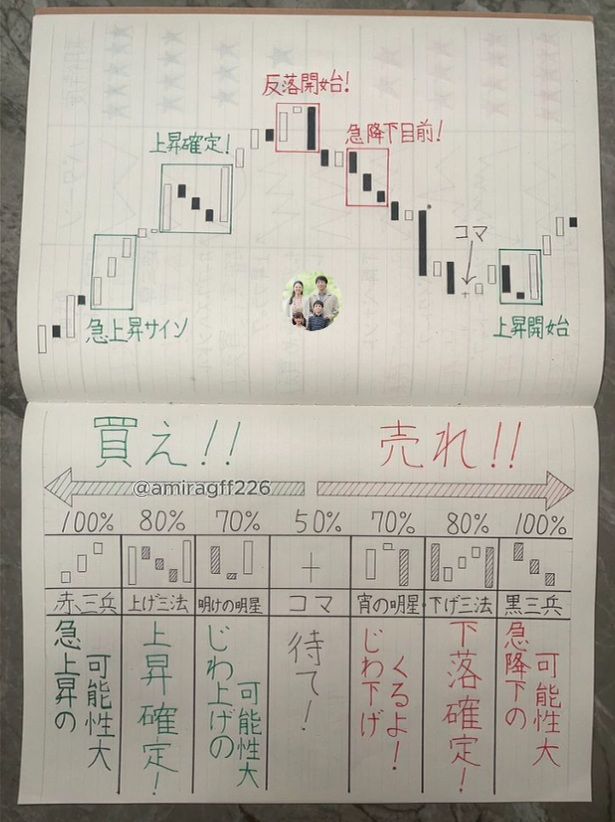 反落開始!
上昇確定!
急降下目前!
コマ
急上昇サイン
上昇開始
買え!!
売れ!!
@amiragff226
100% 80% 70% 50% 70% 80% 100%
赤三兵 上げ三法 明けの明星 コマ 宵の明星 下げ三法 黒三兵
急上昇の
可能性大
上昇確定!
じわ上げの
可能性大
待て!
じわ下げ
くるよ!
下落確定!
急降下の
可能性大